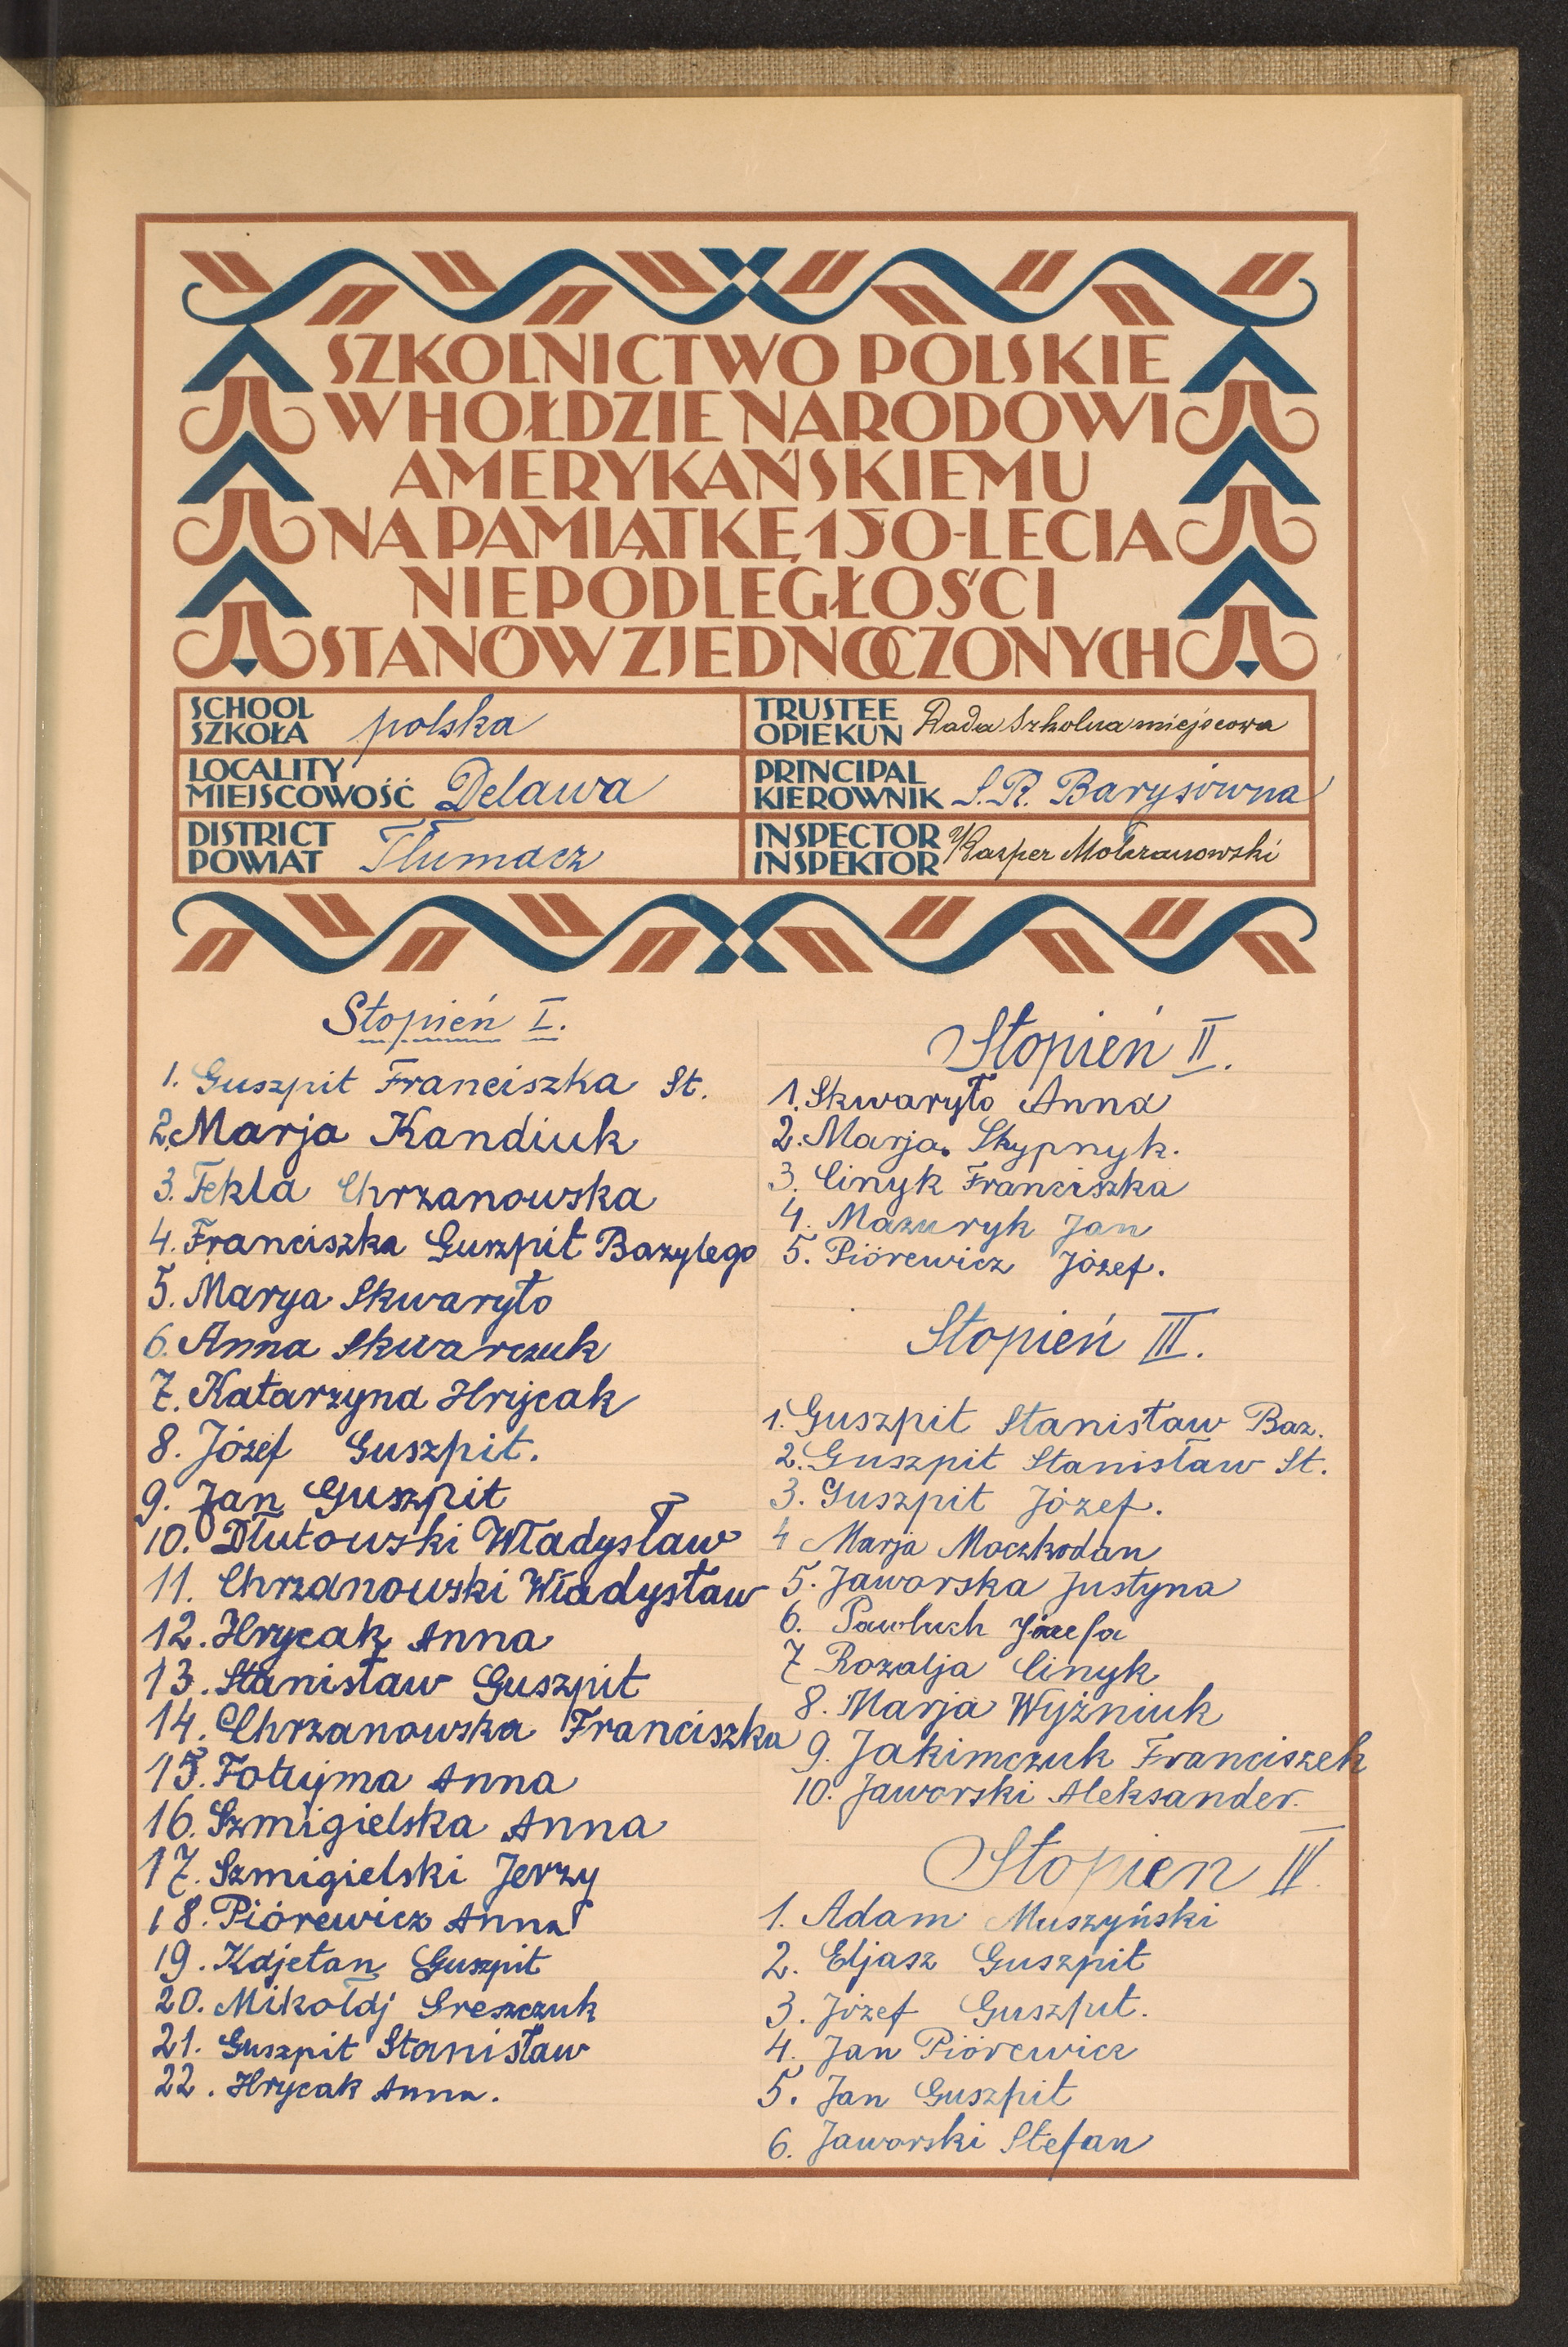 SZKOLNICTWO POLSKIE
W HOŁDZIE NARODOWI
AMERYKAŃSKIEMU
NA PAMIĄTKĘ 150-LECIA
NIEPODLEGŁOŚCI
STANÓW ZJEDNOCZONYCH
SCHOOL
SZKOŁA polska
TRUSTEE
OPIEKUN Rada Szkolna miejscowa
LOCALITY
MIEJSCOWOŚĆ Delawa
PRINCIPAL
KIEROWNIK S. R. Barysówna
DISTRICT
POWIAT Tłumacz
INSPECTOR
INSPEKTOR Kasper Mokrzanowski
Stopień I.
1. Guszpit Franciszka St.
2. Marja Kandiuk
3. Tekla Chrzanowska
4. Franciszka Guszpit Bazylego
5. Marya Skwaryło
6. Anna Skwarczuk
7. Katarzyna Hrycak
8. Józef Guszpit.
9. Jan Guszpit
10. Dłutowski Władysław
11. Chrzanowski Władysław
12. Hrycak Anna
13. Stanisław Guszpit
14. Chrzanowska Franciszka
15. Fotujma Anna
16. Szmigielska Anna
17. Szmigielski Jerzy
18. Piórewicz Anna
19. Kajetan Guszpit
20. Mikołaj Greszczuk
21. Guszpit Stanisław
22. Hrycak Anna.
Stopień II.
1. Skwaryło Anna
2. Marja Skypnyk.
3. Cinyk Franciszka
4. Mazuryk Jan
5. Piórewicz Józef.
Stopień III.
1. Guszpit Stanisław Baz.
2. Guszpit Stanisław St.
3. Guszpit Józef.
4 Marja Moczkodan
5. Jaworska Justyna
6. Pawluch Józefa
7 Rozalja Cinyk
8. Marja Wyżniuk
9. Jakimczuk Franciszek
10. Jaworski Aleksander.
Stopien IV.
1. Adam Muszyński
2. Eljasz Guszpit
3. Józef Guszpit.
4. Jan Piórewicz
5. Jan Guszpit
6. Jaworski Stefan